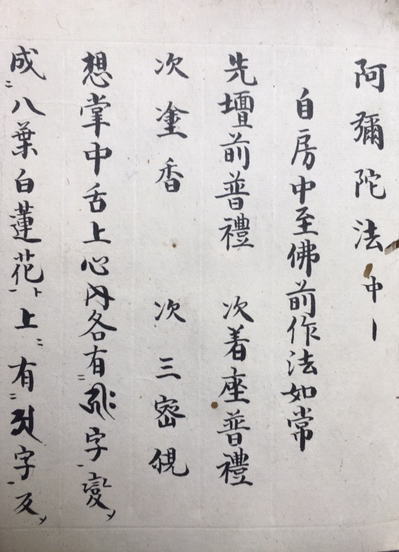 阿彌陀法中｜
自房中至佛前作法如常
先壇前普禮　次着座普禮
次塗香　次三密観
想掌中舌上心內各有字變
成八葉白蓮花上有字反